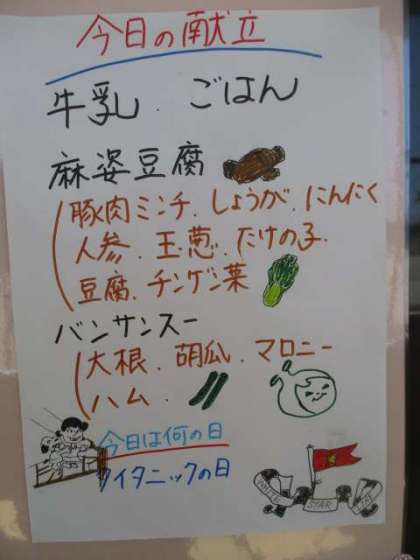 今日の献立
牛乳．ごはん
麻姿豆腐
豚肉ミンチ．しょうが．にんにく
人参．玉葱．たけの子．
豆腐．チンゲン菜
バンサンスー
大根．胡瓜．マロニー
ハム．
今日は何の日
タイタニックの日
WHITE STAR LINE